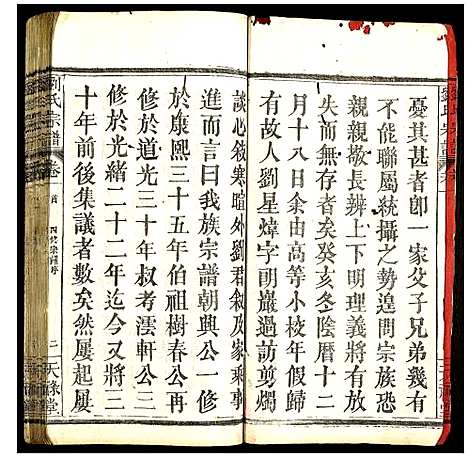 憂其甚者卽一家父子兄弟幾有
不能聯屬統攝之勢遑問宗族恐
親親長長辨上下明理義將有放
失而無存者矣癸亥冬陰曆十二
月十八日余由高等小校年假歸
有故人劉星煒字朗巖過訪剪燭
談心敘寒暄外劉君敘及家乘事
進而言曰我族宗譜朝興公一修
於康熙三十五年伯祖樹春公再
修於道光三十年叔考澐軒公三
修於光緒二十二年迄今又將三
十年前後集議者數矣然屢起屢
劉氏宗譜
卷一
首
四修宗譜序
二
天祿堂